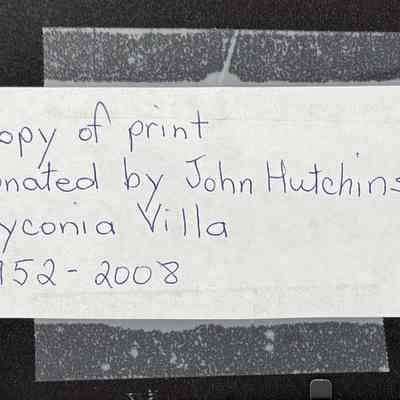 opy of print
onated by John Hutchins
yconia Villa
952 - 2008